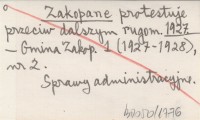 Zakopane protestuje
przeciw dalszym rugom. 1927
— Gmina Zakop. 1 (1927-1928),
nr 2.
Sprawy administracyjne.